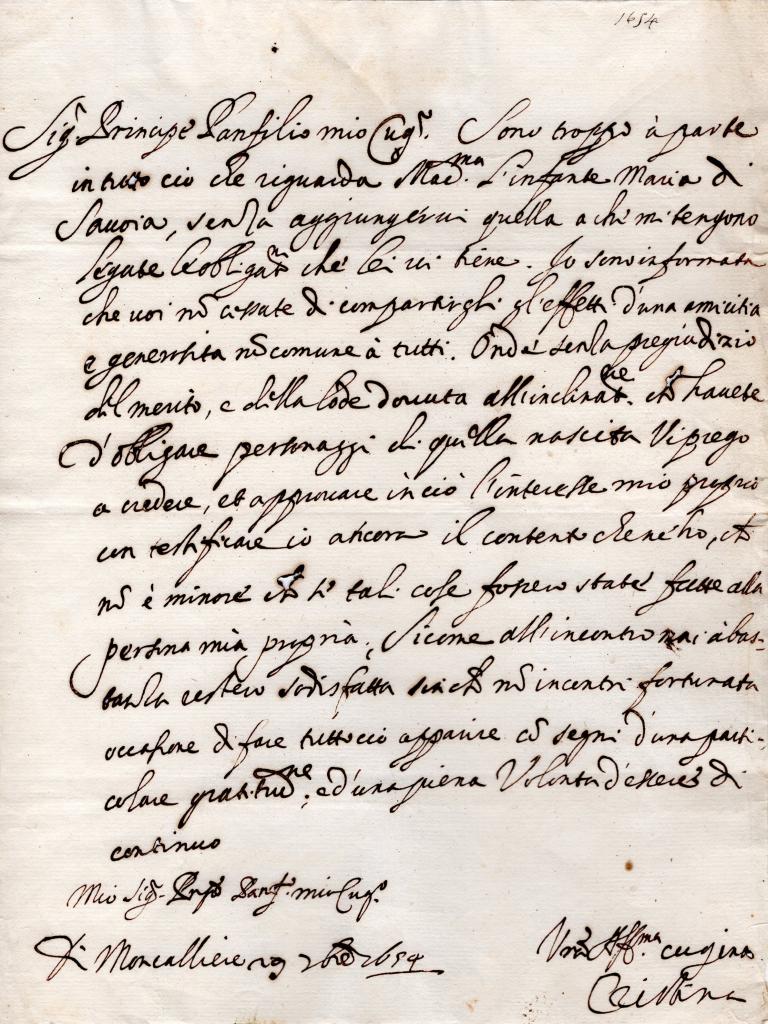 1654
Sig.r Principe Panfilio mio Cug.o Sono troppo à parte
in tutto ciò che riguarda Mad.ma L'infante Maria di
Savoia, senza aggiungervi quella a che mi tengono
legate le obligat.ni che lei vi tiene. Io sono informata
che voi nō cessate di compartirghi gl'effetti d'una amicitia
e generosita nō comune à tutti. Onde senza pregiudizio
del merito, e della lode dovuta all'inclinat.ne ch havete
d'obligare personaggi di quella nascita Vi prego
a credere, et approvare in ciò l'interesse mio proprio
con testificare io ancora il contento che ne hò, ch
nō è minore ch se tali cose fossero state fatte alla
persona mia propria; Sicome all'incontro mai à bas-
tanza resterò sodisfatta sin ch nō incontri fortunata
occasione di fare tutto ciò apparire cō segni d'una parti-
colare gratitud.ne, e d'una piena Volontà d'essere di
continuo
Mio Sig.r Prnpe Panf.o mio Cug.o
Di Moncalliere 29 1654
Vra Aff.ma cugina
Cristina